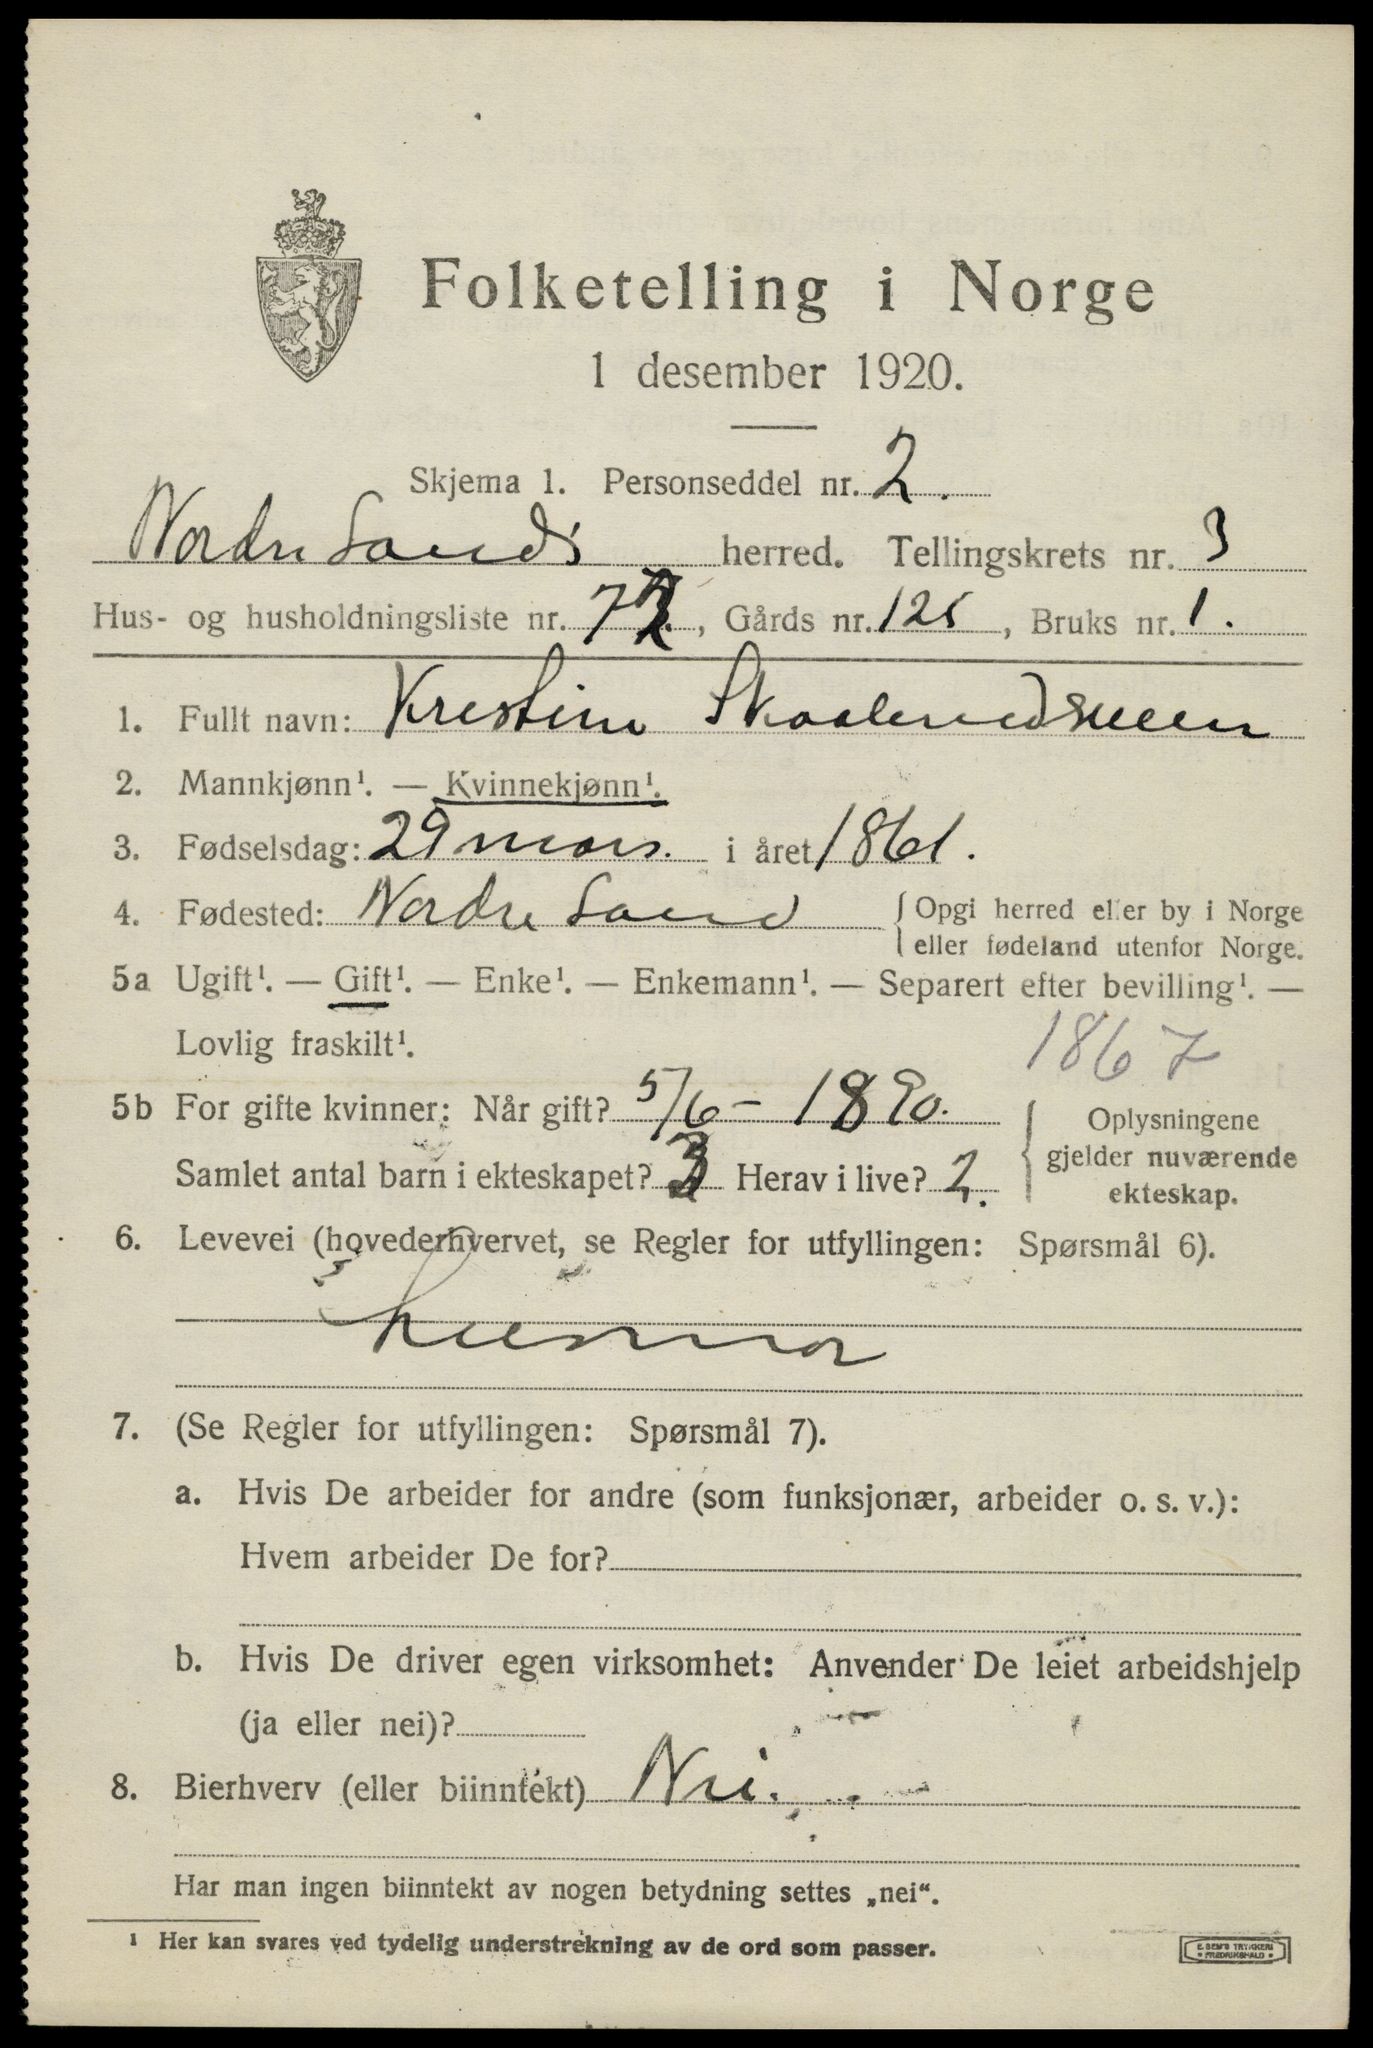 Folketelling i Norge
1 desember 1920.
Skjema 1. Personseddel nr. 2.
Nordre Lands herred. Tellingskrets nr. 3
Hus- og husholdningsliste nr. 72, Gårds nr. 125, Bruks nr. 1.
1. Fullt navn: Kristine
2. Mannkjønn¹. — Kvinnekjønn¹.
3. Fødselsdag: 29 mars. i året 1861.
4. Fødested: Nordre Land { Opgi herred eller by i Norge
eller fødeland utenfor Norge.
5a Ugift¹. — Gift¹. — Enke¹. — Enkemann¹. — Separert efter bevilling¹. —
Lovlig fraskilt¹.
1867
5b For gifte kvinner: Når gift? 5/6 – 1890. { Oplysningene
gjelder nuværende
ekteskap.
Samlet antal barn i ekteskapet? 3 Herav i live? 2.
6. Levevei (hovederhvervet, se Regler for utfyllingen: Spørsmål 6).
husmor
7. (Se Regler for utfyllingen: Spørsmål 7).
a. Hvis De arbeider for andre (som funksjonær, arbeider o. s. v.):
Hvem arbeider De for?
b. Hvis De driver egen virksomhet: Anvender De leiet arbeidshjelp
(ja eller nei)?
8. Bierhverv (eller biinntekt) Nei.
Har man ingen biinntekt av nogen betydning settes „nei“.
¹ Her kan svares ved tydelig understrekning av de ord som passer.
E. SEM'S TRYKKERI
• FREDRIKSHALD •